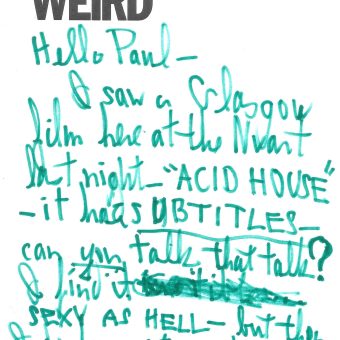 WEIRD
Hello Paul –
I saw a Glasgow
film here at the Nuart
last night – "ACID HOUSE"
– it has SUBTITLES –
can you talk that talk?
I find it
SEXY AS HELL – but the